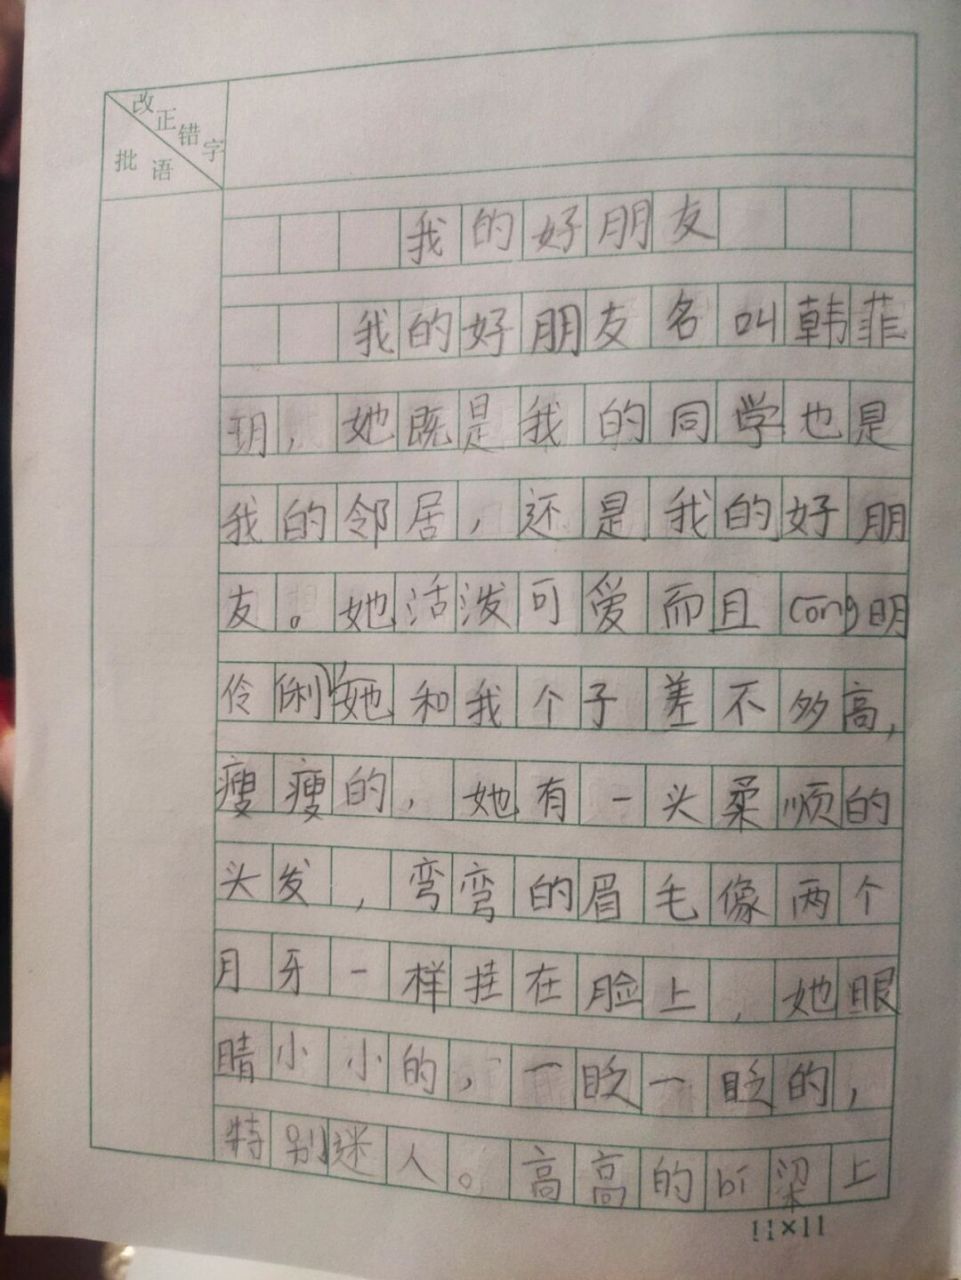 改正错字
批语
我的好朋友
我的好朋友名叫韩菲
玥，她既是我的同学也是
我的邻居，还是我的好朋
友。她活泼可爱而且cōng明
伶俐，她和我个子差不多高，
瘦瘦的，她有一头柔顺的
头发，弯弯的眉毛像两个
月牙一样挂在脸上，她眼
睛小小的，一眨一眨的，
特别迷人。高高的bí梁上
11×11